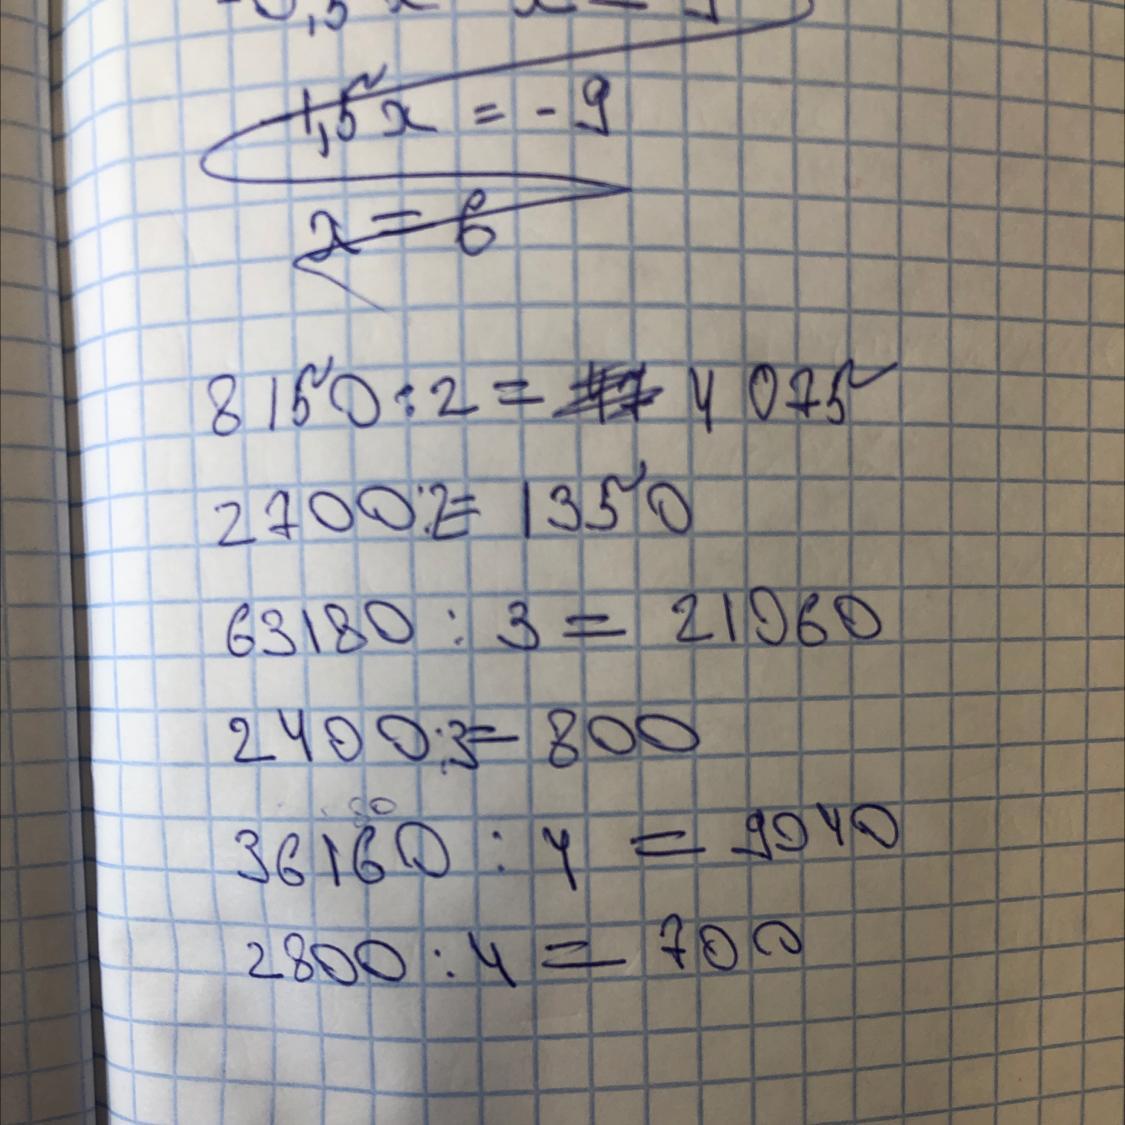 1,5x = -9
x = 6
8150 : 2 = 4075
2700:2= 1350
63180 : 3 = 21060
2400:3= 800
80
36160 : 4 = 9040
2800 : 4 = 700